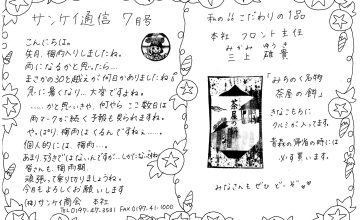 サンケイ通信 7月号
こんにちは。
先月、梅雨入りしましたね。
雨になるかと思ったら…
まさかの30℃越えが何日かありましたね。
急に暑くなり…大変ですよね。
……かと思いきや、何やらここ数日は
雨マークが続く予報も見られますね。
やっぱり、梅雨はくるんですねぇ…。
個人的には、梅雨…。
あまり、好きではないんですが…しかたないですね
皆さんも、梅雨明
頑張って乗り切りましょうね。
今月もよろしくお願いします
(株)サンケイ商会 本社
私の
こだわりの1品
本社 フロント主任
みかみ ゆうき
三上 雄貴
「みちのく名物
茶屋の餅」
茶屋の餅
きなこもちに
クルミが入ってます。
青森の帰省の時には
必ず買います。
みなさんもぜひ